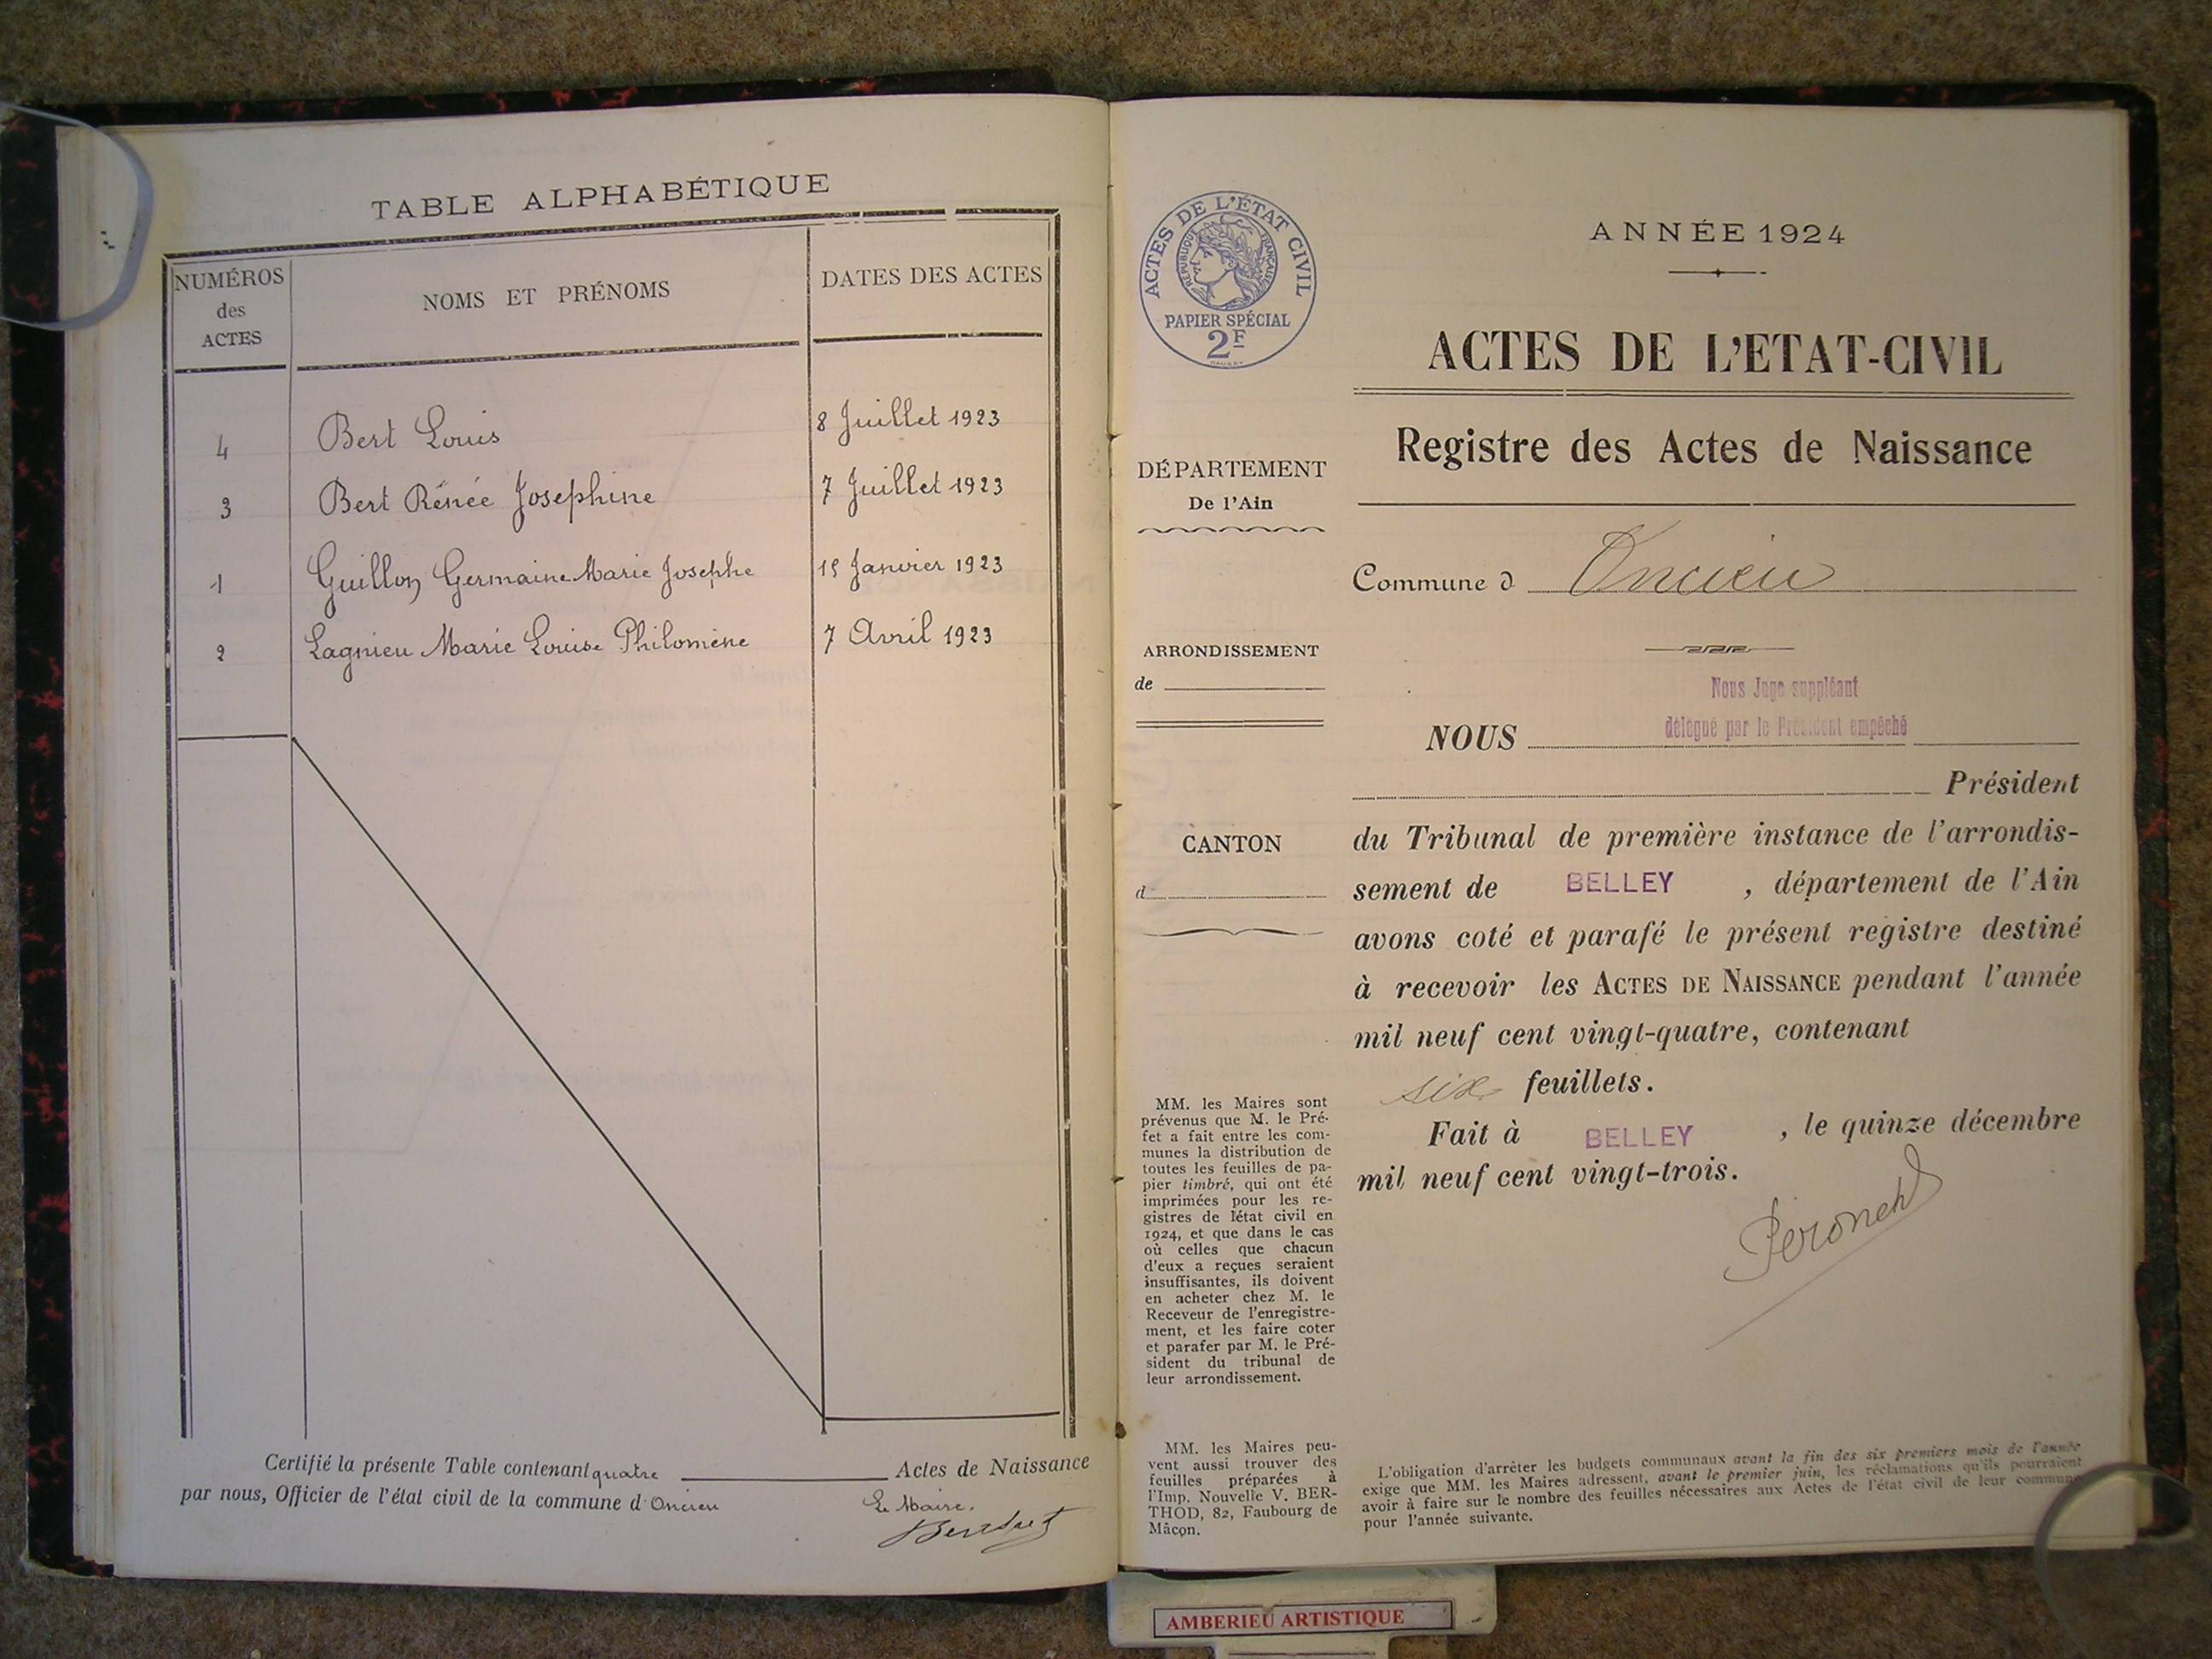 TABLE ALPHABÉTIQUE
NUMÉROS
des
ACTES
NOMS ET PRÉNOMS
DATES DES ACTES
4 Bert Louis 8 Juillet 1923
3 Bert Rénée Josephine 7 Juillet 1923
1 Guillon Germaine Marie Josephe 15 Janvier 1923
2 Lagnieu Marie Louise Philomène 7 Avril 1923
Certifié la présente Table contenant quatre Actes de Naissance
par nous, Officier de l'état civil de la commune d'Oncieu
Le Maire.
ACTES DE L'ÉTAT CIVIL
RÉPUBLIQUE FRANÇAISE
PAPIER SPÉCIAL
2F
DÉPARTEMENT
De l'Ain
ARRONDISSEMENT
de
CANTON
d
MM. les Maires sont
prévenus que M. le Pré-
fet a fait entre les com-
munes la distribution de
toutes les feuilles de pa-
pier timbré, qui ont été
imprimées pour les re-
gistres de l'état civil en
1924, et que dans le cas
où celles que chacun
d'eux a reçues seraient
insuffisantes, ils doivent
en acheter chez M. le
Receveur de l'enregistre-
ment, et les faire coter
et parafer par M. le Pré-
sident du tribunal de
leur arrondissement.
MM. les Maires peu-
vent aussi trouver des
feuilles préparées à
l'Imp. Nouvelle V. BER-
THOD, 82, Faubourg de
Mâcon.
ANNÉE 1924
ACTES DE L'ETAT-CIVIL
Registre des Actes de Naissance
Commune d Oncieu
Nous Juge suppléant
délégué par le Président empêché
NOUS
Président
du Tribunal de première instance de l'arrondis-
sement de BELLEY, département de l'Ain
avons coté et parafé le présent registre destiné
à recevoir les ACTES DE NAISSANCE pendant l'année
mil neuf cent vingt-quatre, contenant
six feuillets.
Fait à BELLEY, le quinze décembre
mil neuf cent vingt-trois.
L'obligation d'arrêter les budgets communaux avant la fin des six premiers mois de l'année
exige que MM. les Maires adressent, avant le premier juin, les réclamations qu'ils pourraient
avoir à faire sur le nombre des feuilles nécessaires aux Actes de l'état civil de leur commune
pour l'année suivante.
AMBERIEU ARTISTIQUE